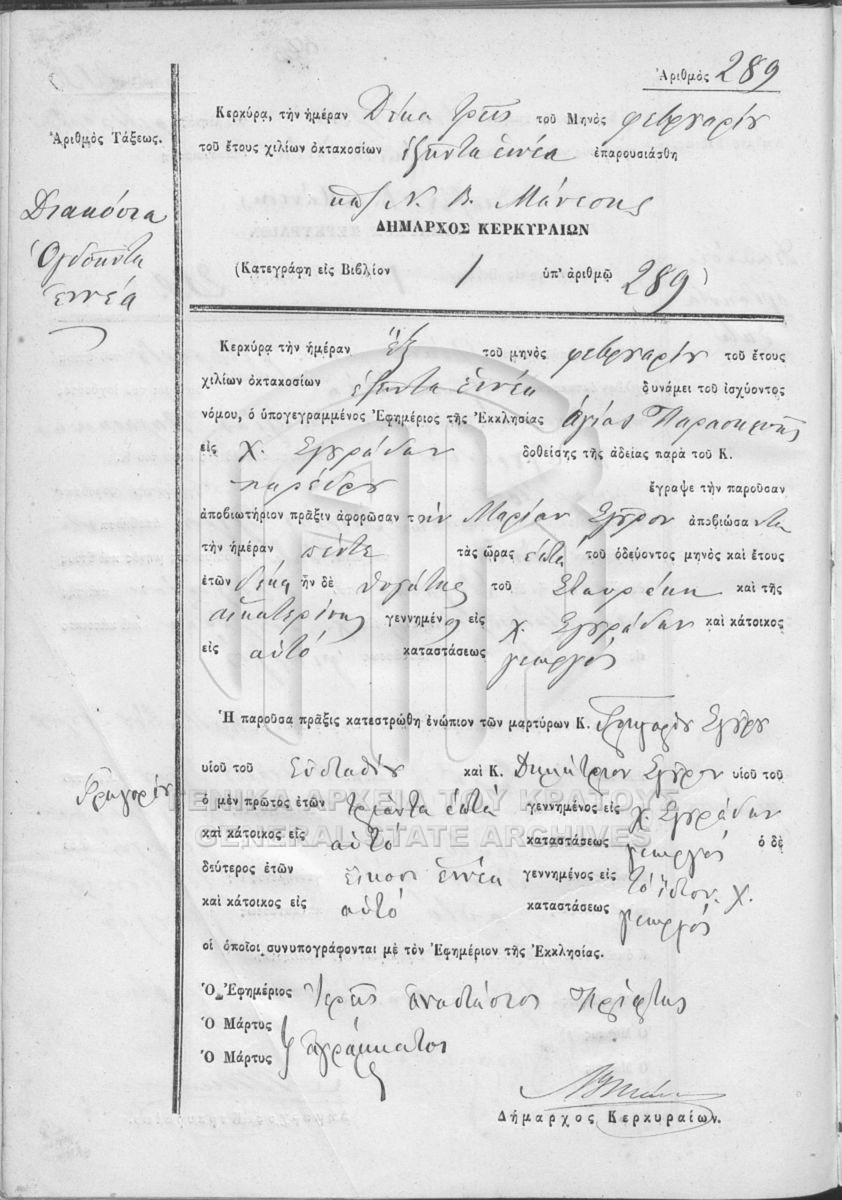 Ἀριθμὸς 289
Κερκύρα, τὴν ἡμέραν Δέκα τρεῖς τοῦ Μηνὸς φεβρουαρίου
Ἀριθμὸς Τάξεως.
τοῦ ἔτους χιλίων ὀκτακοσίων ἑξῆντα ἐννέα ἐπαρουσιάσθη
Διακόσια
Ὀγδοῆντα
ἐννέα
Ν. Β. Μάνεσης
ΔΗΜΑΡΧΟΣ ΚΕΡΚΥΡΑΙΩΝ
(Κατεγράφη εἰς Βιβλίον 1 ὑπ' ἀριθμῷ 289)
Κερκύρα τὴν ἡμέραν ἓξ τοῦ μηνὸς φεβρουαρίου τοῦ ἔτους
χιλίων ὀκτακοσίων ἑξῆντα ἐννέα δυνάμει τοῦ ἰσχύοντος
νόμου, ὁ ὑπογεγραμμένος Ἐφημέριος τῆς Ἐκκλησίας ἁγίας Παρασκευῆς
εἰς χ. Σγυράδων δοθείσης τῆς ἀδείας παρὰ τοῦ Κ.
παρέδρου ἔγραψε τὴν παροῦσαν
ἀποβιωτήριον πρᾶξιν ἀφορῶσαν τὴν Μαρίαν Σγοῦρον ἀποβιώσαντα
τὴν ἡμέραν πέντε τὰς ὥρας ἑπτὰ τοῦ ὁδεύοντος μηνὸς καὶ ἔτους
ἐτῶν δέκα ἦν δὲ θυγάτηρ τοῦ Σταυράκη καὶ τῆς
αἰκατερίνης γεννημένη εἰς χ. Σγυράδων καὶ κάτοικος
εἰς αὐτό καταστάσεως γεωργός
Ἡ παροῦσα πρᾶξις κατεστρώθη ἐνώπιον τῶν μαρτύρων Κ. Γρηγορίου Σγούρου
υἱοῦ τοῦ Εὐσταθίου καὶ Κ. Δημήτριον Σγοῦρον υἱοῦ τοῦ
Γρηγορίου
ὁ μὲν πρῶτος ἐτῶν τριαντα ἑπτά γεννημένος εἰς χ. Σγυράδων
καὶ κάτοικος εἰς αὐτό καταστάσεως γεωργός ὁ δὲ
δεύτερος ἐτῶν εἴκοσι ἐννέα γεννημένος εἰς τὸ ἴδιον χ.
καὶ κάτοικος εἰς αὐτό καταστάσεως γεωργός
οἱ ὁποῖοι συνυπογράφονται μὲ τὸν Ἐφημέριον τῆς Ἐκκλησίας.
Ὁ Ἐφημέριος Ἱερεῦς Αναστάσιος Πρίφτης
Ὁ Μάρτυς
Ὁ Μάρτυς ἀγράμματοι
Δήμαρχος Κερκυραίων.
ΓΕΝΙΚΑ ΑΡΧΕΙΑ ΤΟΥ ΚΡΑΤΟΥΣ
GENERAL STATE ARCHIVES